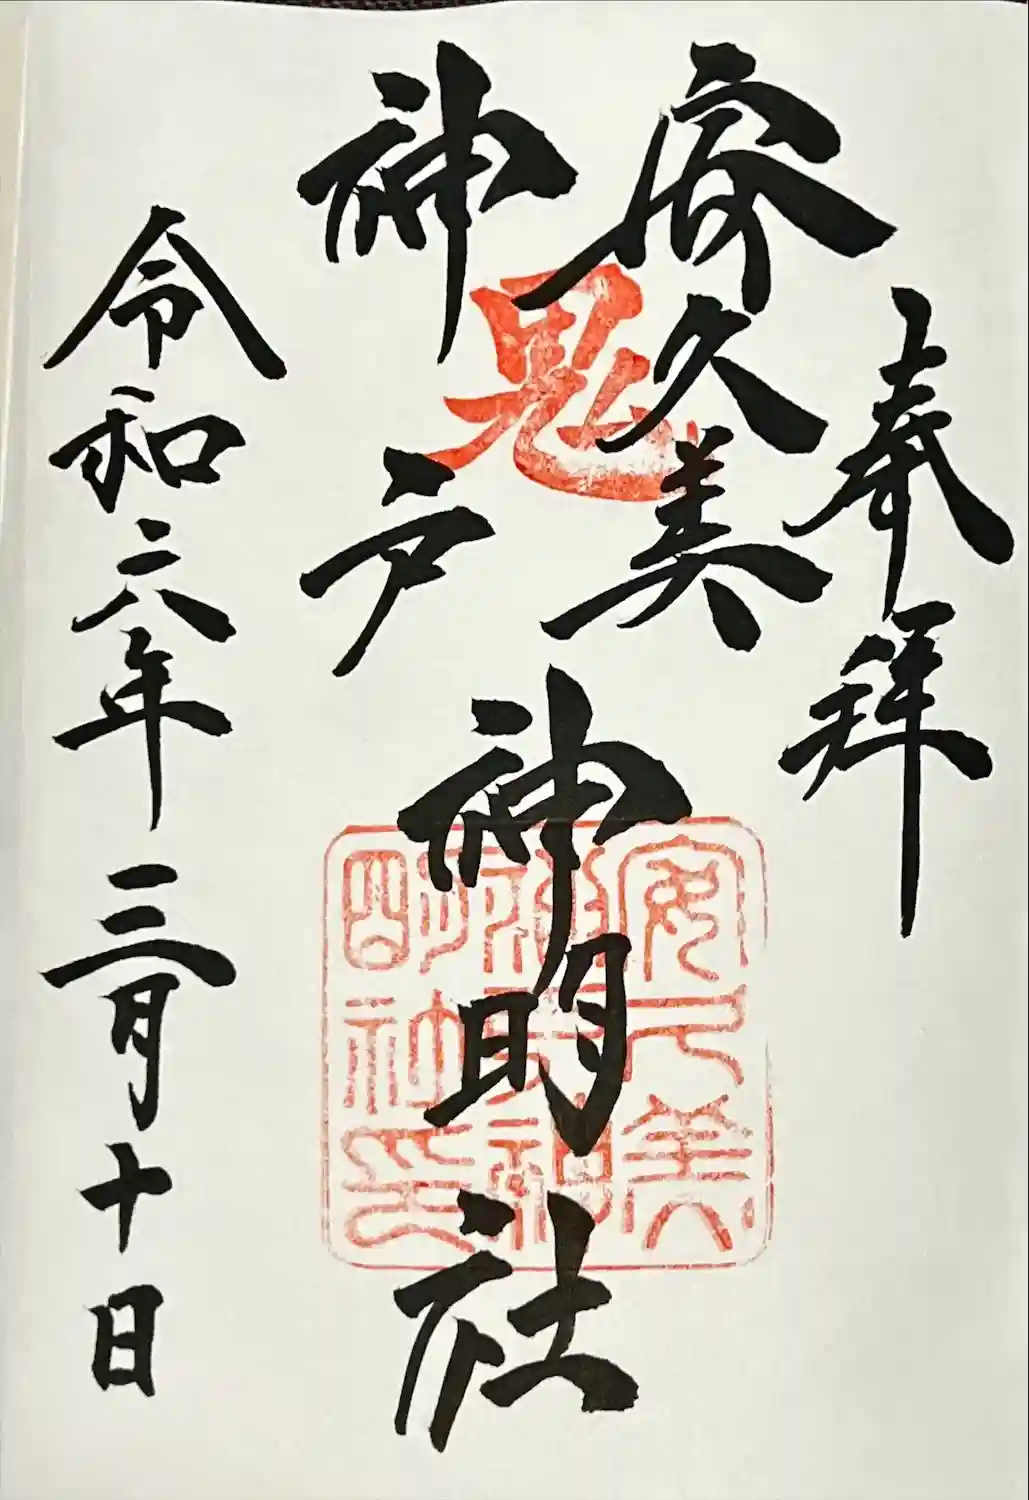 奉拝
安久美
神戸
神明社
鬼
安久美
神戸神
明社印
令和六年三月十日